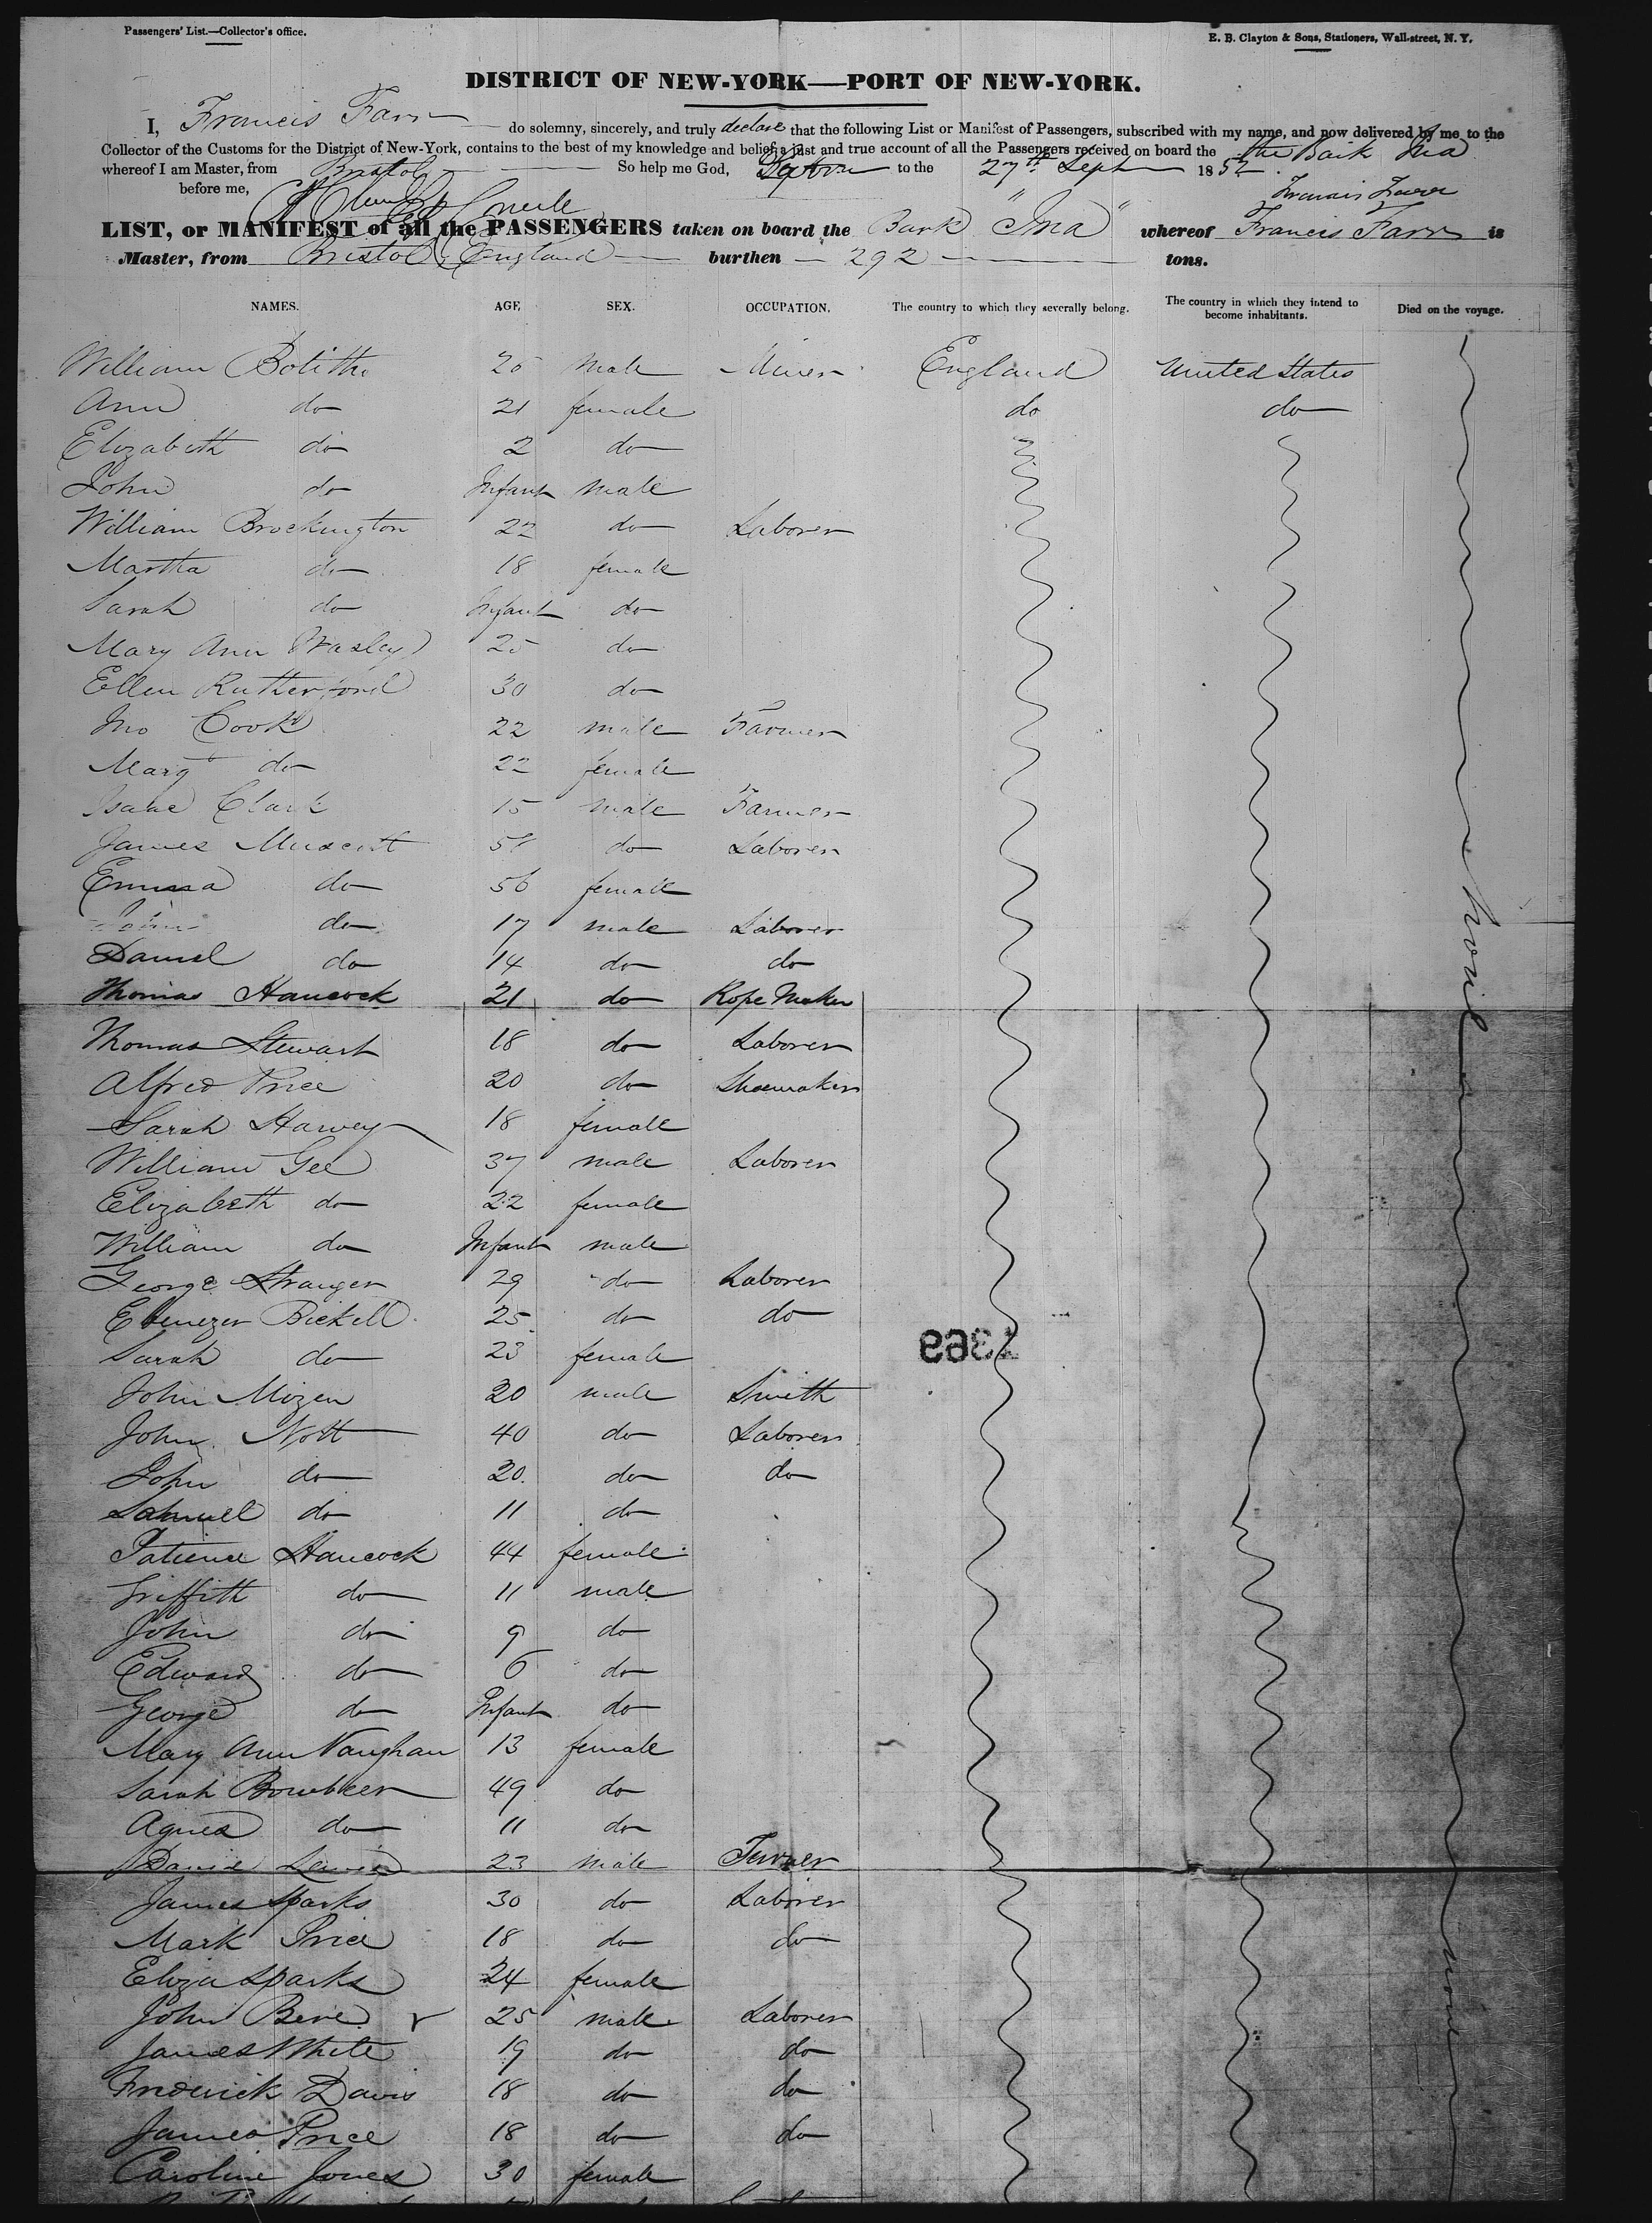 Passengers' List.—Collector's office.
E. B. Clayton & Sons, Stationers, Wall-street, N. Y.
DISTRICT OF NEW-YORK—PORT OF NEW-YORK.
I, Francis Farr do solemny, sincerely, and truly declare that the following List or Manifest of Passengers, subscribed with my name, and now delivered by me to the
Collector of the Customs for the District of New-York, contains to the best of my knowledge and belief a just and true account of all the Passengers received on board the the Bark Ina
whereof I am Master, from Bristol So help me God, to the 27th Sept 1852.
before me, Francis Farr
LIST, or MANIFEST of all the PASSENGERS taken on board the Bark "Ina" whereof Francis Farr is
Master, from Bristol England burthen 292 tons.
NAMES. AGE SEX. OCCUPATION. The country to which they severally belong. The country in which they intend to become inhabitants. Died on the voyage.
William Bolitho 26 male Miner England United States
Ann do 21 female do do
Elizabeth do 2 do
John do Infant male
William Brockington 22 do Laborer
Martha do 18 female
Sarah do Infant do
Mary Ann Wasley 25 do
Ellen Rutherford 30 do
Jno Cook 22 male Farmer
Margt do 22 female
Isaac Clark 15 male Farmer
James Muscott do Laborer
Emma do 56 female
do 17 male Laborer
Daniel do 14 do do
Thomas Hancock 21 do Rope Maker
Thomas Stewart 18 do Laborer
Alfred Price 20 do Shoemaker
Sarah Harvey 18 female
William Gee 37 male Laborer
Elizabeth do 22 female
William do Infant male
George Stranger 29 do Laborer
Ebenezer Bickell 25 do do
Sarah do 23 female
John Mizen 20 male Smith
John Nott 40 do Laborer
John do 20 do do
Samuel do 11 do
Patience Hancock 44 female
Griffith do 11 male
John do 9 do
Edward do 6 do
George do Infant do
Mary Ann Vaughan 13 female
Sarah Bowbeer 49 do
Agnes do 11 do
David Lewis 23 male Turner
James Sparks 30 do Laborer
Mark Price 18 do do
Eliza Sparks 24 female
John Bere 25 male Laborer
James White 19 do do
Frederick Davis 18 do do
James Price 18 do do
Caroline Jones 30 female
none
none